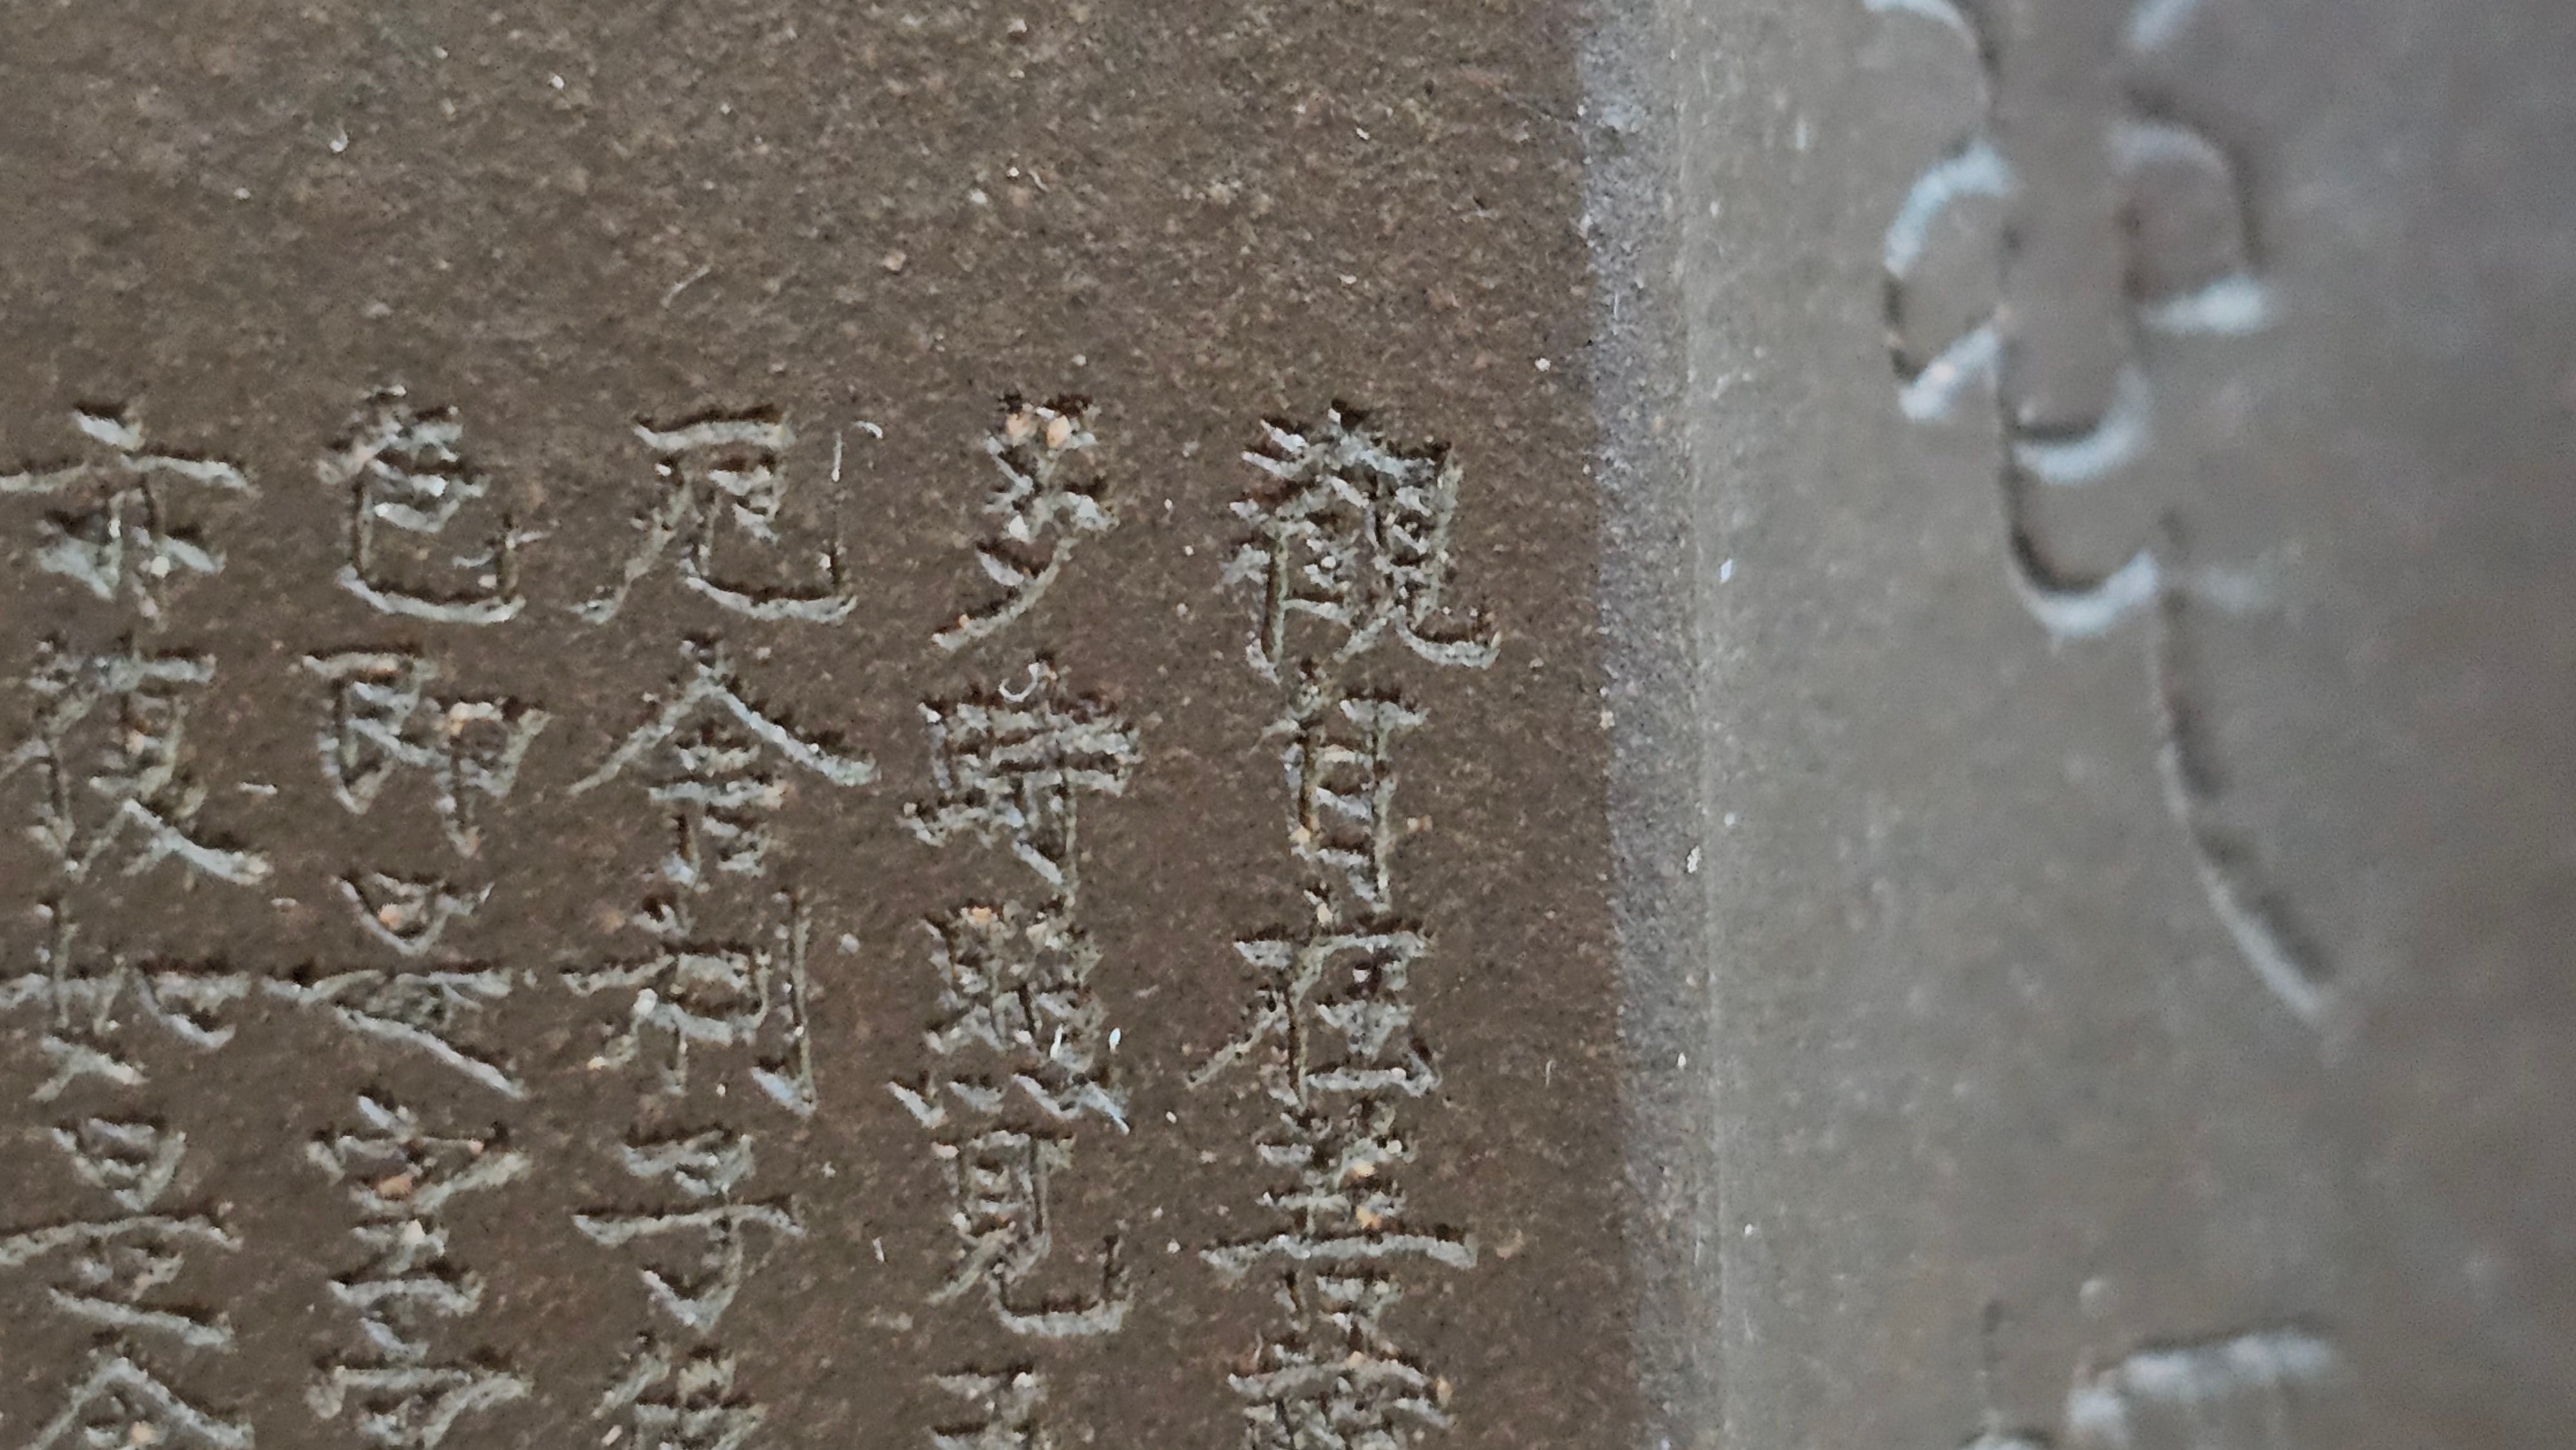 觀自在菩薩
多時照見五
厄舍利子色
色即是空空
亦復如是舍